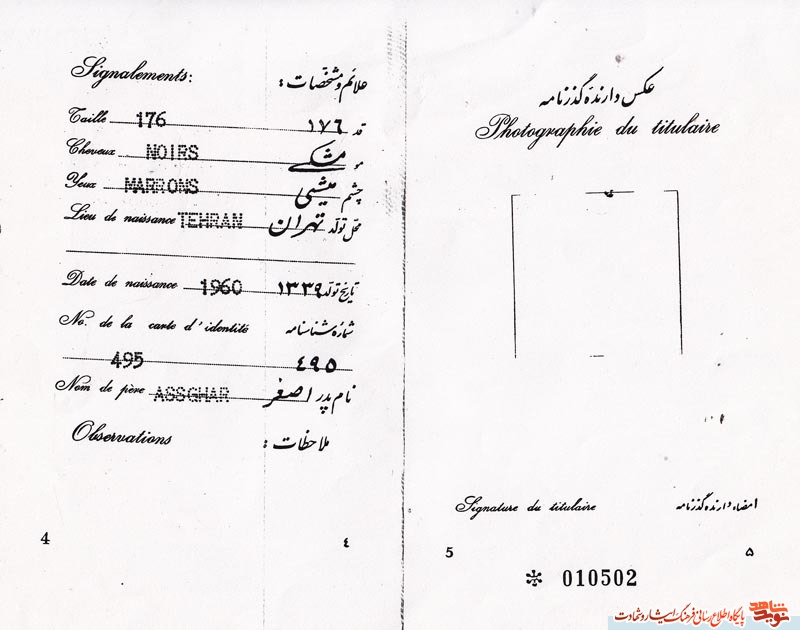 Signalements: علائم ومشخصات :
Taille 176 قد ١٧٦
Cheveux NOIRS مو مشکی
Yeux MARRONS چشم میشی
Lieu de naissance TEHRAN محل تولد تهران
Date de naissance 1960 تاریخ تولد ١٣٣٩
No. de la carte d'identité شماره شناسنامه
495 ٤٩٥
Nom de père ASSGHAR نام پدر اصغر
Observations ملاحظات :
4 ٤
عکس دارنده گذرنامه
Photographie du titulaire
Signature du titulaire امضاء دارنده گذرنامه
5 ۵
* 010502
پایگاه اطلاع رسانی فرهنگ ایثار و شهادت
نوید شاهد